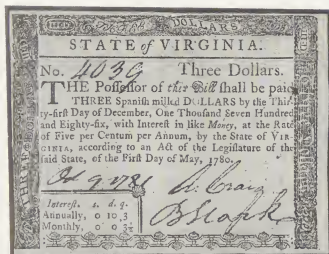 DOLLARS
STATE of VIRGINIA.
No. 4039 Three Dollars.
THE Possessor of this Bill shall be paid
THREE Spanish milled DOLLARS by the Thir-
ty-first Day of December, One Thousand Seven Hundred
and Eighty-six, with Interest in like Money, at the Rate
of Five per Centum per Annum, by the State of VIR-
GINIA, according to an Act of the Legislature of the
said State, of the First Day of May, 1780.
A. Craig
B Stark
Interest. s. d. q.
Annually, 0 10 3
Monthly, 0 0 3½